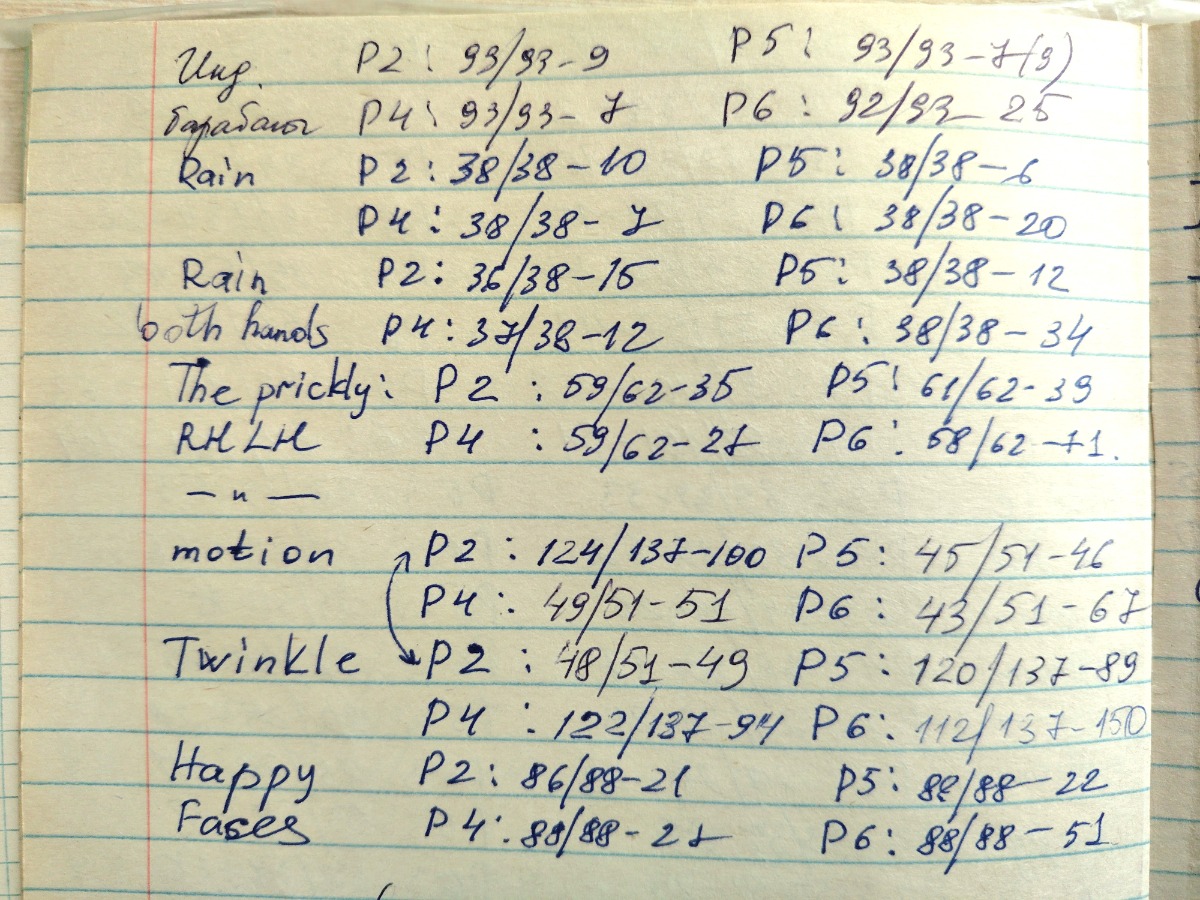 Инд. P2: 93/93-9 P5: 93/93-7(9)
барабаны P4: 93/93-7 P6: 92/93-25
Rain P2: 38/38-10 P5: 38/38-6
P4: 38/38-7 P6: 38/38-20
Rain P2: 36/38-15 P5: 38/38-12
both hands P4: 37/38-12 P6: 38/38-34
The prickly: P2: 59/62-35 P5: 61/62-39
RHLH P4: 59/62-27 P6: 58/62-71.
— " —
motion P2: 124/137-100 P5: 45/51-46
P4: 49/51-51 P6: 43/51-67
Twinkle P2: 48/51-49 P5: 120/137-89
P4: 122/137-94 P6: 112/137-150
Happy P2: 86/88-21 P5: 88/88-22
Faces P4: 88/88-27 P6: 88/88-51